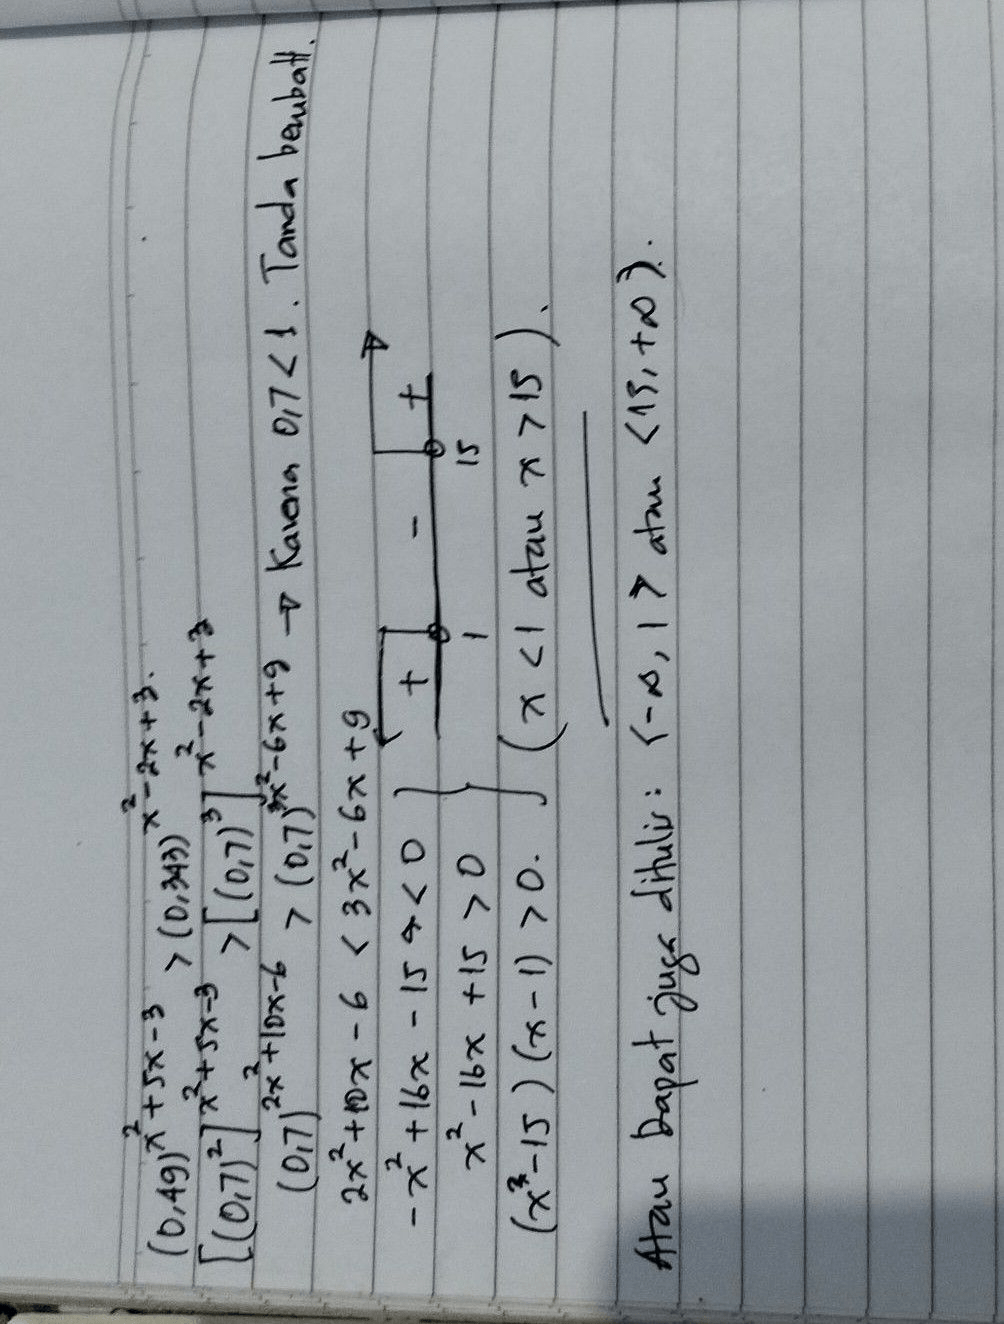 (0,49)^{x²+5x-3} > (0,343)^{x²-2x+3}.
[(0,7)²]^{x²+5x-3} > [(0,7)³]^{x²-2x+3}
(0,7)^{2x²+10x-6} > (0,7)^{3x²-6x+9} → Karena 0,7<1. Tanda berubah.
2x²+10x-6 < 3x²-6x+9
-x²+16x-15 < 0
+ - +
x²-16x+15 > 0
1 15
(x-15)(x-1) > 0. (x<1 atau x>15).
Atau Dapat juga ditulis: <-∞, 1> atau <15, +∞>.